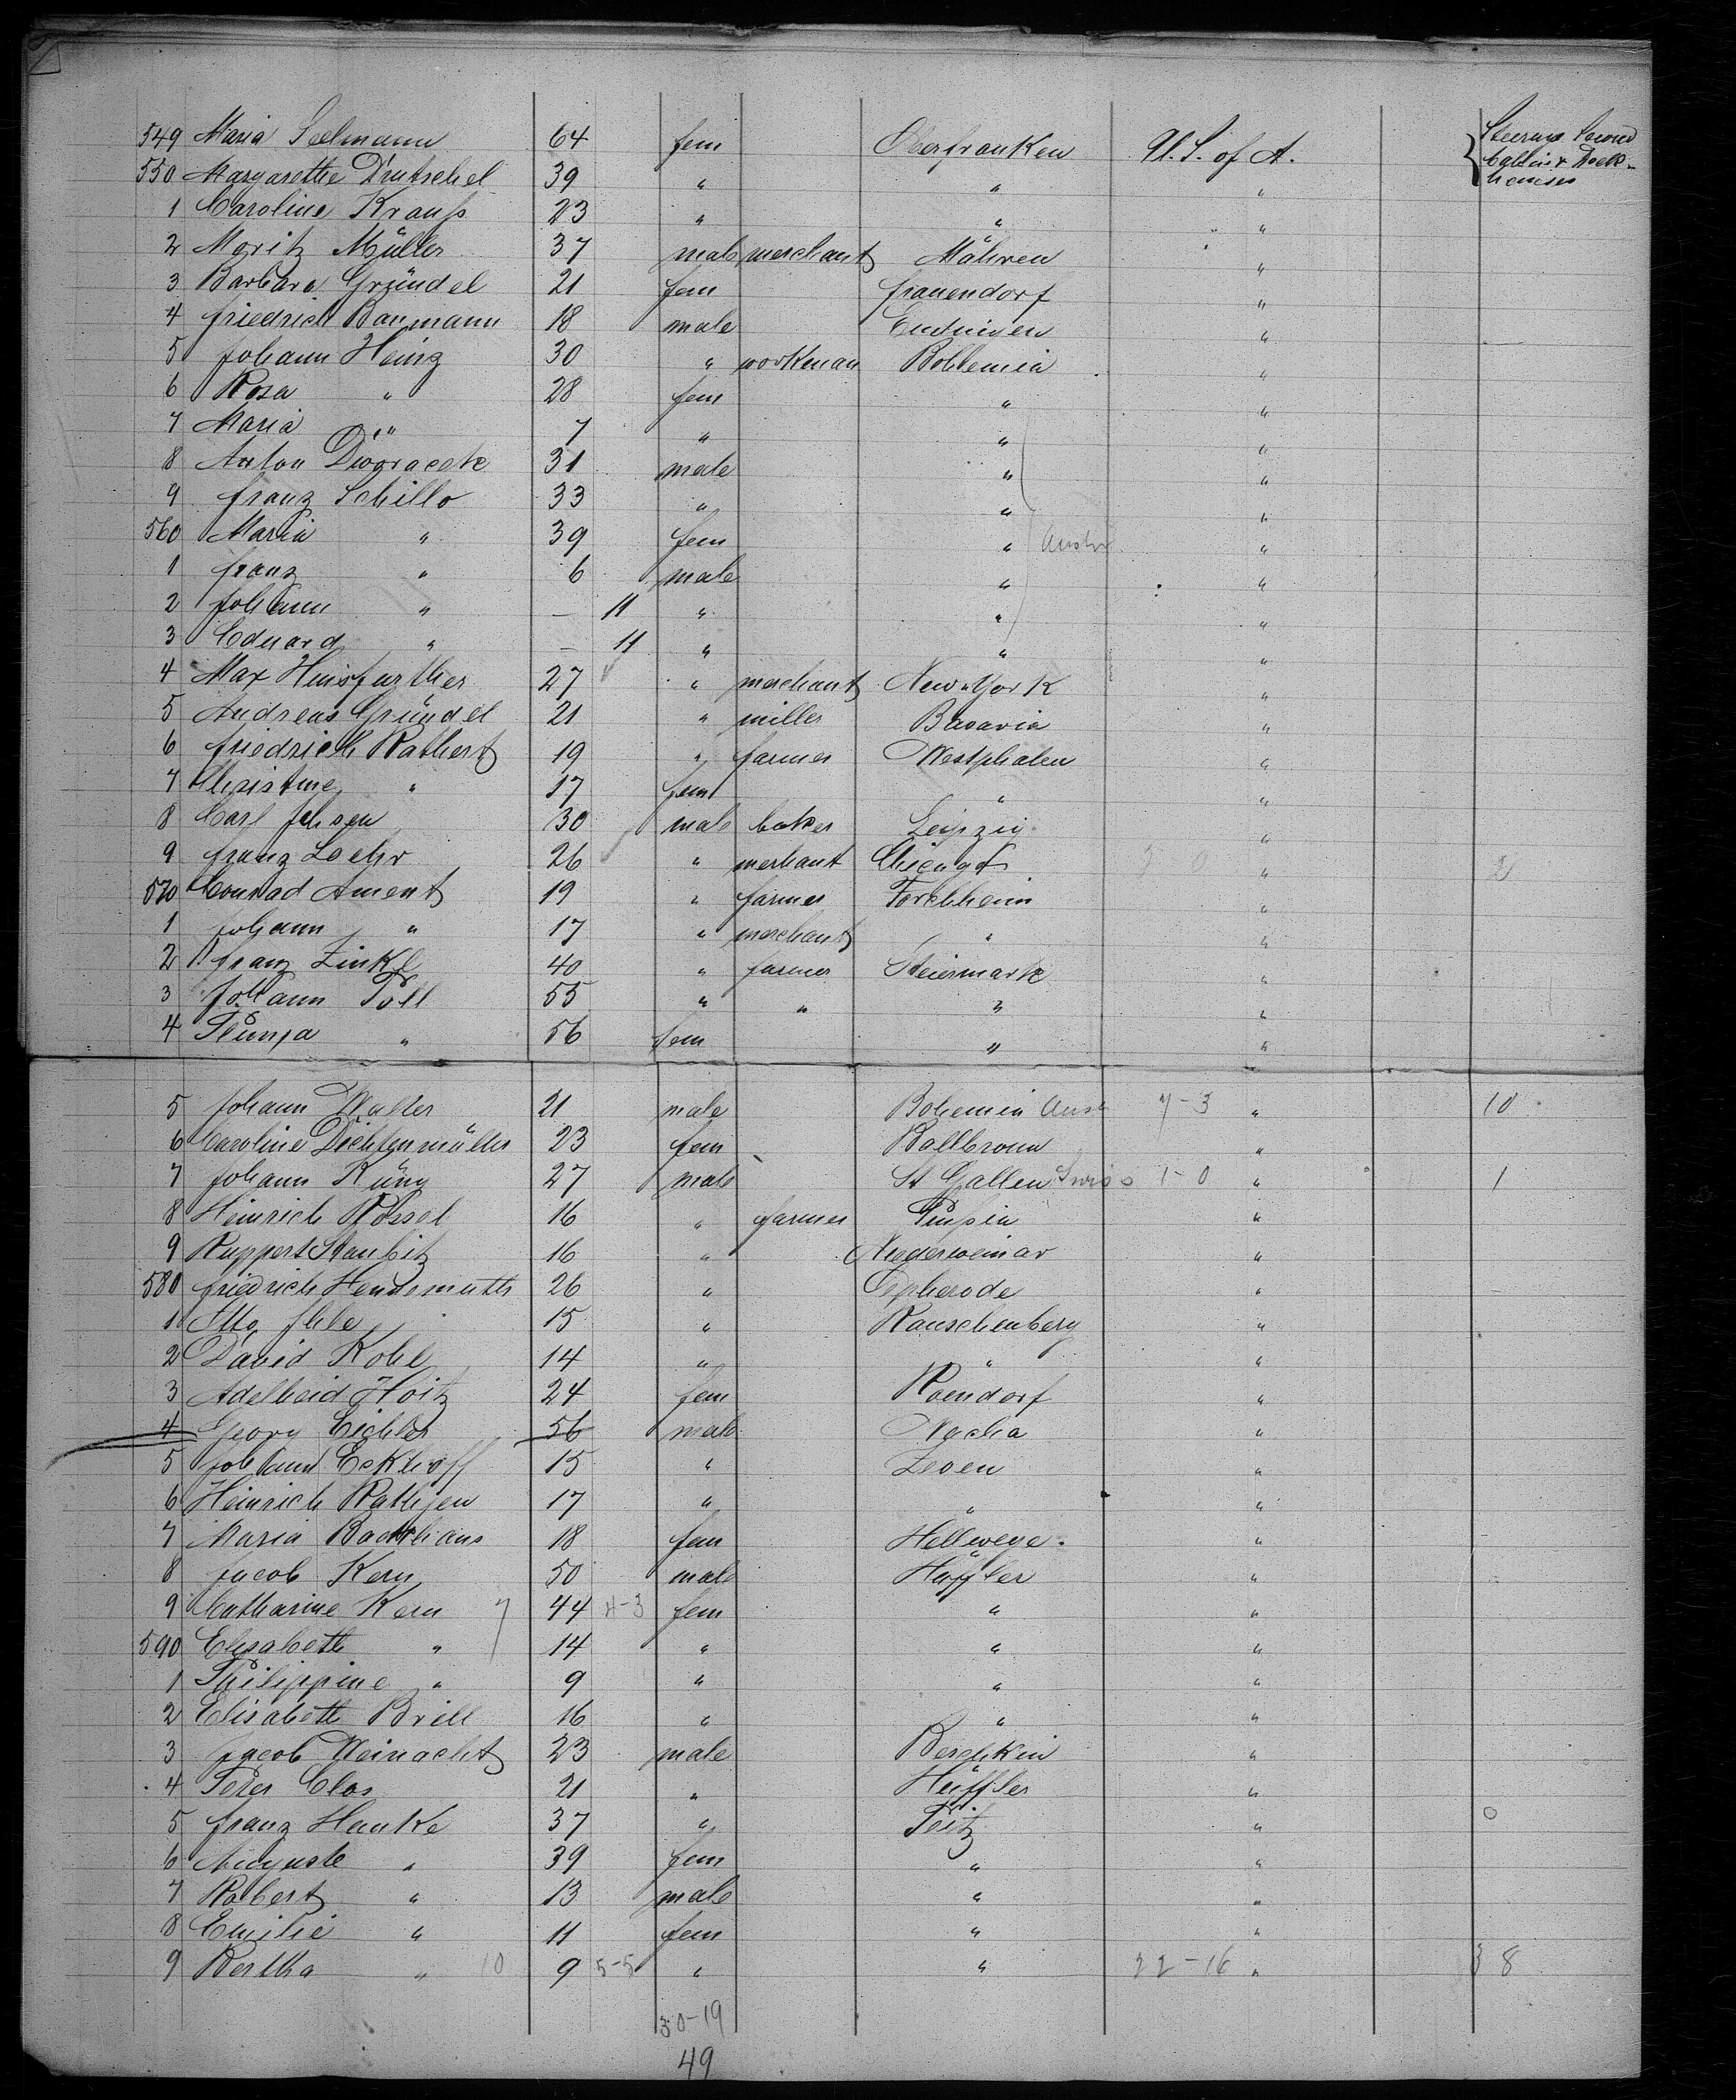 549 Maria Seelmann 64 fem Oberfranken U. S. of A. { Steerage Second
550 Margarethe Drutschel 39 " " " Cabin & Deck-
1 Caroline Krauß 23 " " " houses
2 Moritz Müller 37 male merchant Mähren "
3 Barbara Gründel 21 fem Frauendorf "
4 Friedrich Baumann 18 male "
5 Johann Heinz 30 " workman Bohhemia "
6 Rosa " 28 fem " "
7 Maria " 7 " " "
8 Anton Dworacek 31 male " "
9 Franz Schillo 33 " " "
560 Maria " 39 fem " Austr "
1 Franz " 6 male " "
2 Johann " – 11 " " "
3 Eduard " – 11 " " "
4 Max Hinsfurther 27 " merchant New-York "
5 Andreas Gründel 21 " miller Bavaria "
6 Friedrich Rathert 19 " farmer Westphalen "
7 Christine " 17 fem " "
8 Carl 30 male baker Leipzig "
9 Franz Loehr 26 " merhant Chicago 3 0 " 2
570 Conrad Ament 19 " farmer Forchheim "
1 Johann " 17 " merchant " "
2 Franz Zinkl 40 " farmer Steiermark "
3 Johann Poll 55 " " " "
4 " 56 fem " "
5 Johann Walter 21 male Bohemia Aust 7-3 " 10
6 Caroline Dichtenmüller 23 fem Ballbronn "
7 Johann Küng 27 male St Gallen Swiss 1-0 " 1
8 Heinrich Rössel 16 " farmer "
9 Ruppert Staubitz 16 " Niederweimar "
580 Friedrich 26 " "
1 Otto 15 " Rauschenberg "
2 David Kohl 14 " " "
3 Adelheid Hoitz 24 fem "
4 Georg Eichler 56 male "
5 Johann Eckhoff 15 " Zeven "
6 Heinrich Rathjen 17 " " "
7 Maria Backhaus 18 fem Hellwege "
8 Jacob Kern 50 male Höffler "
9 Catharine Kern 7 44 4-3 fem " "
590 Elisabeth " 14 " " "
1 Philippine " 9 " " "
2 Elisabeth Brill 16 " " "
3 Jacob Weinacht 23 male "
4 Peter Clos 21 " Hüffler "
5 Franz Hanke 37 " Peitz " 0
6 Auguste " 39 fem " "
7 Robert " 13 male " "
8 Emilie " 11 fem " "
9 Bertha " 10 9 5-5 " " 22-16 " 38
30-19
49